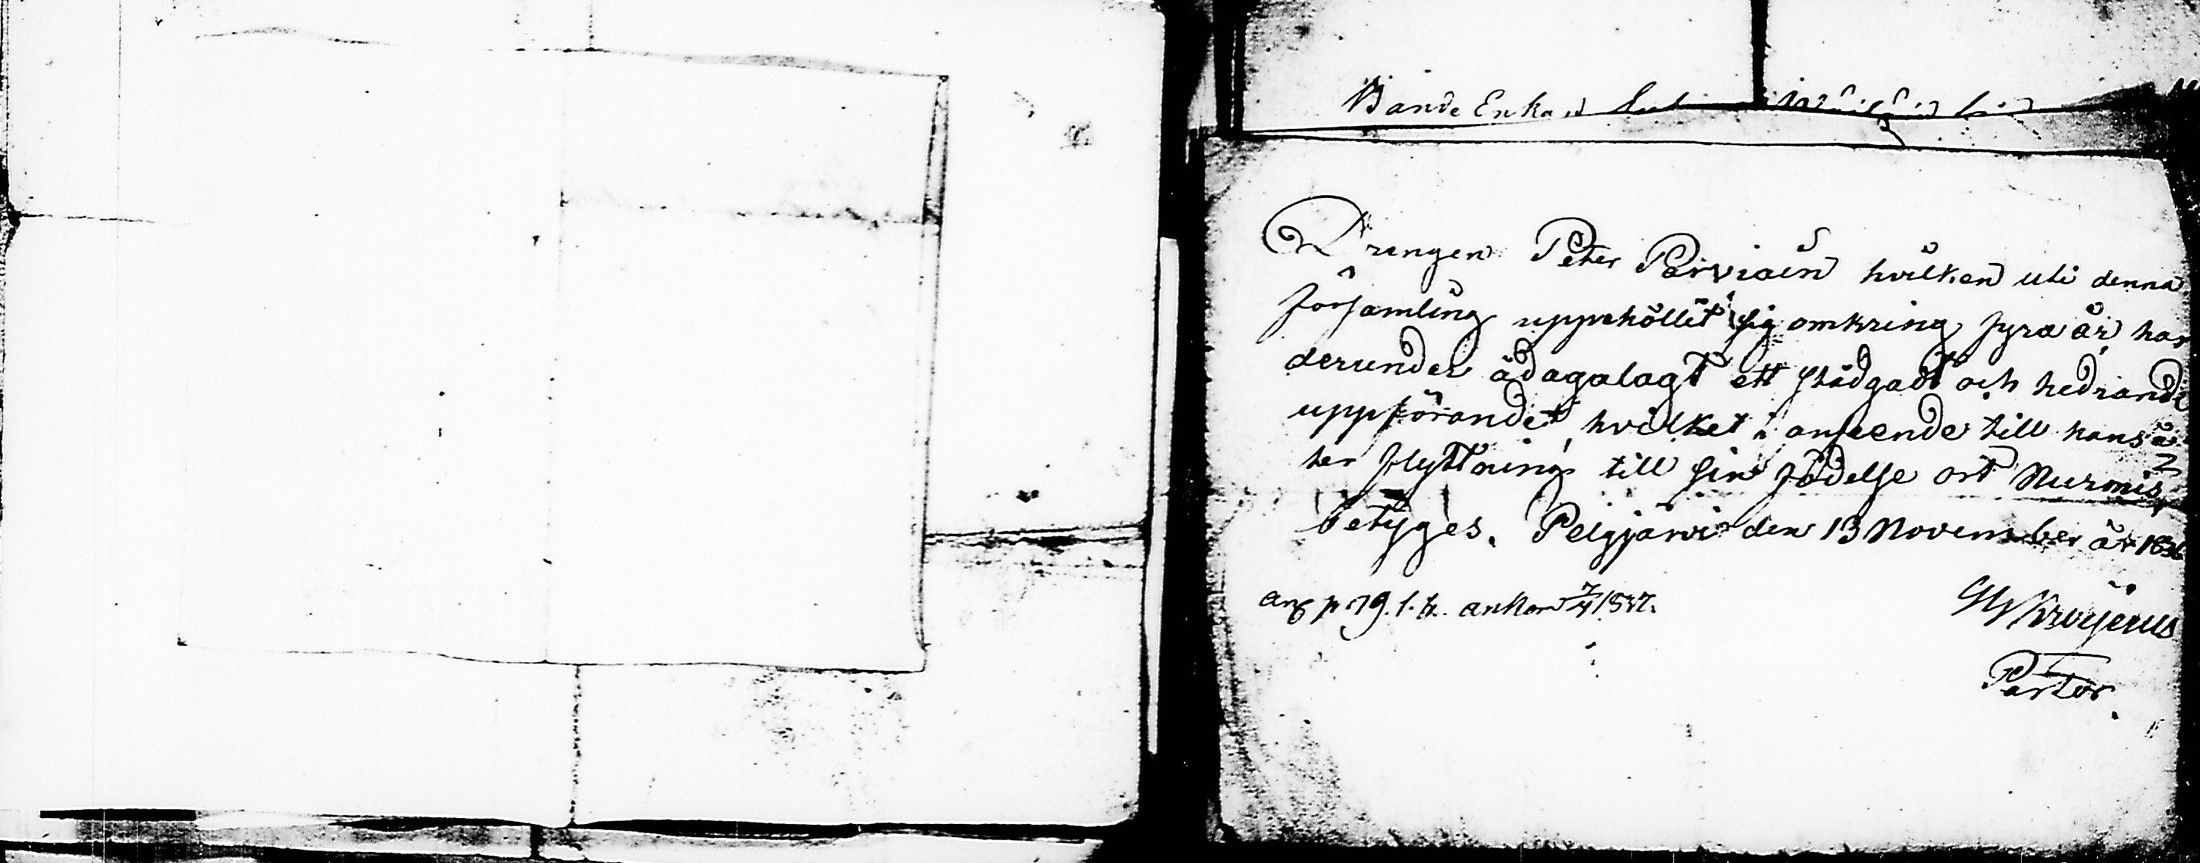 Bande Enkan
Drengen Peter Parviain hvilken uti denna
församling uppehållit sig omkring fyra år, har
derunder ådagalagt ett stadgadt och hedrande
uppförandet, hvilket i anseende till hans å-
ter flyttning till sin födelse ort Nurmis,
betyges. Pelgjärvi den 13 November år 1836
ant p 179. l. b. ankom 7/4 1837.
Krogerus
Pastor.